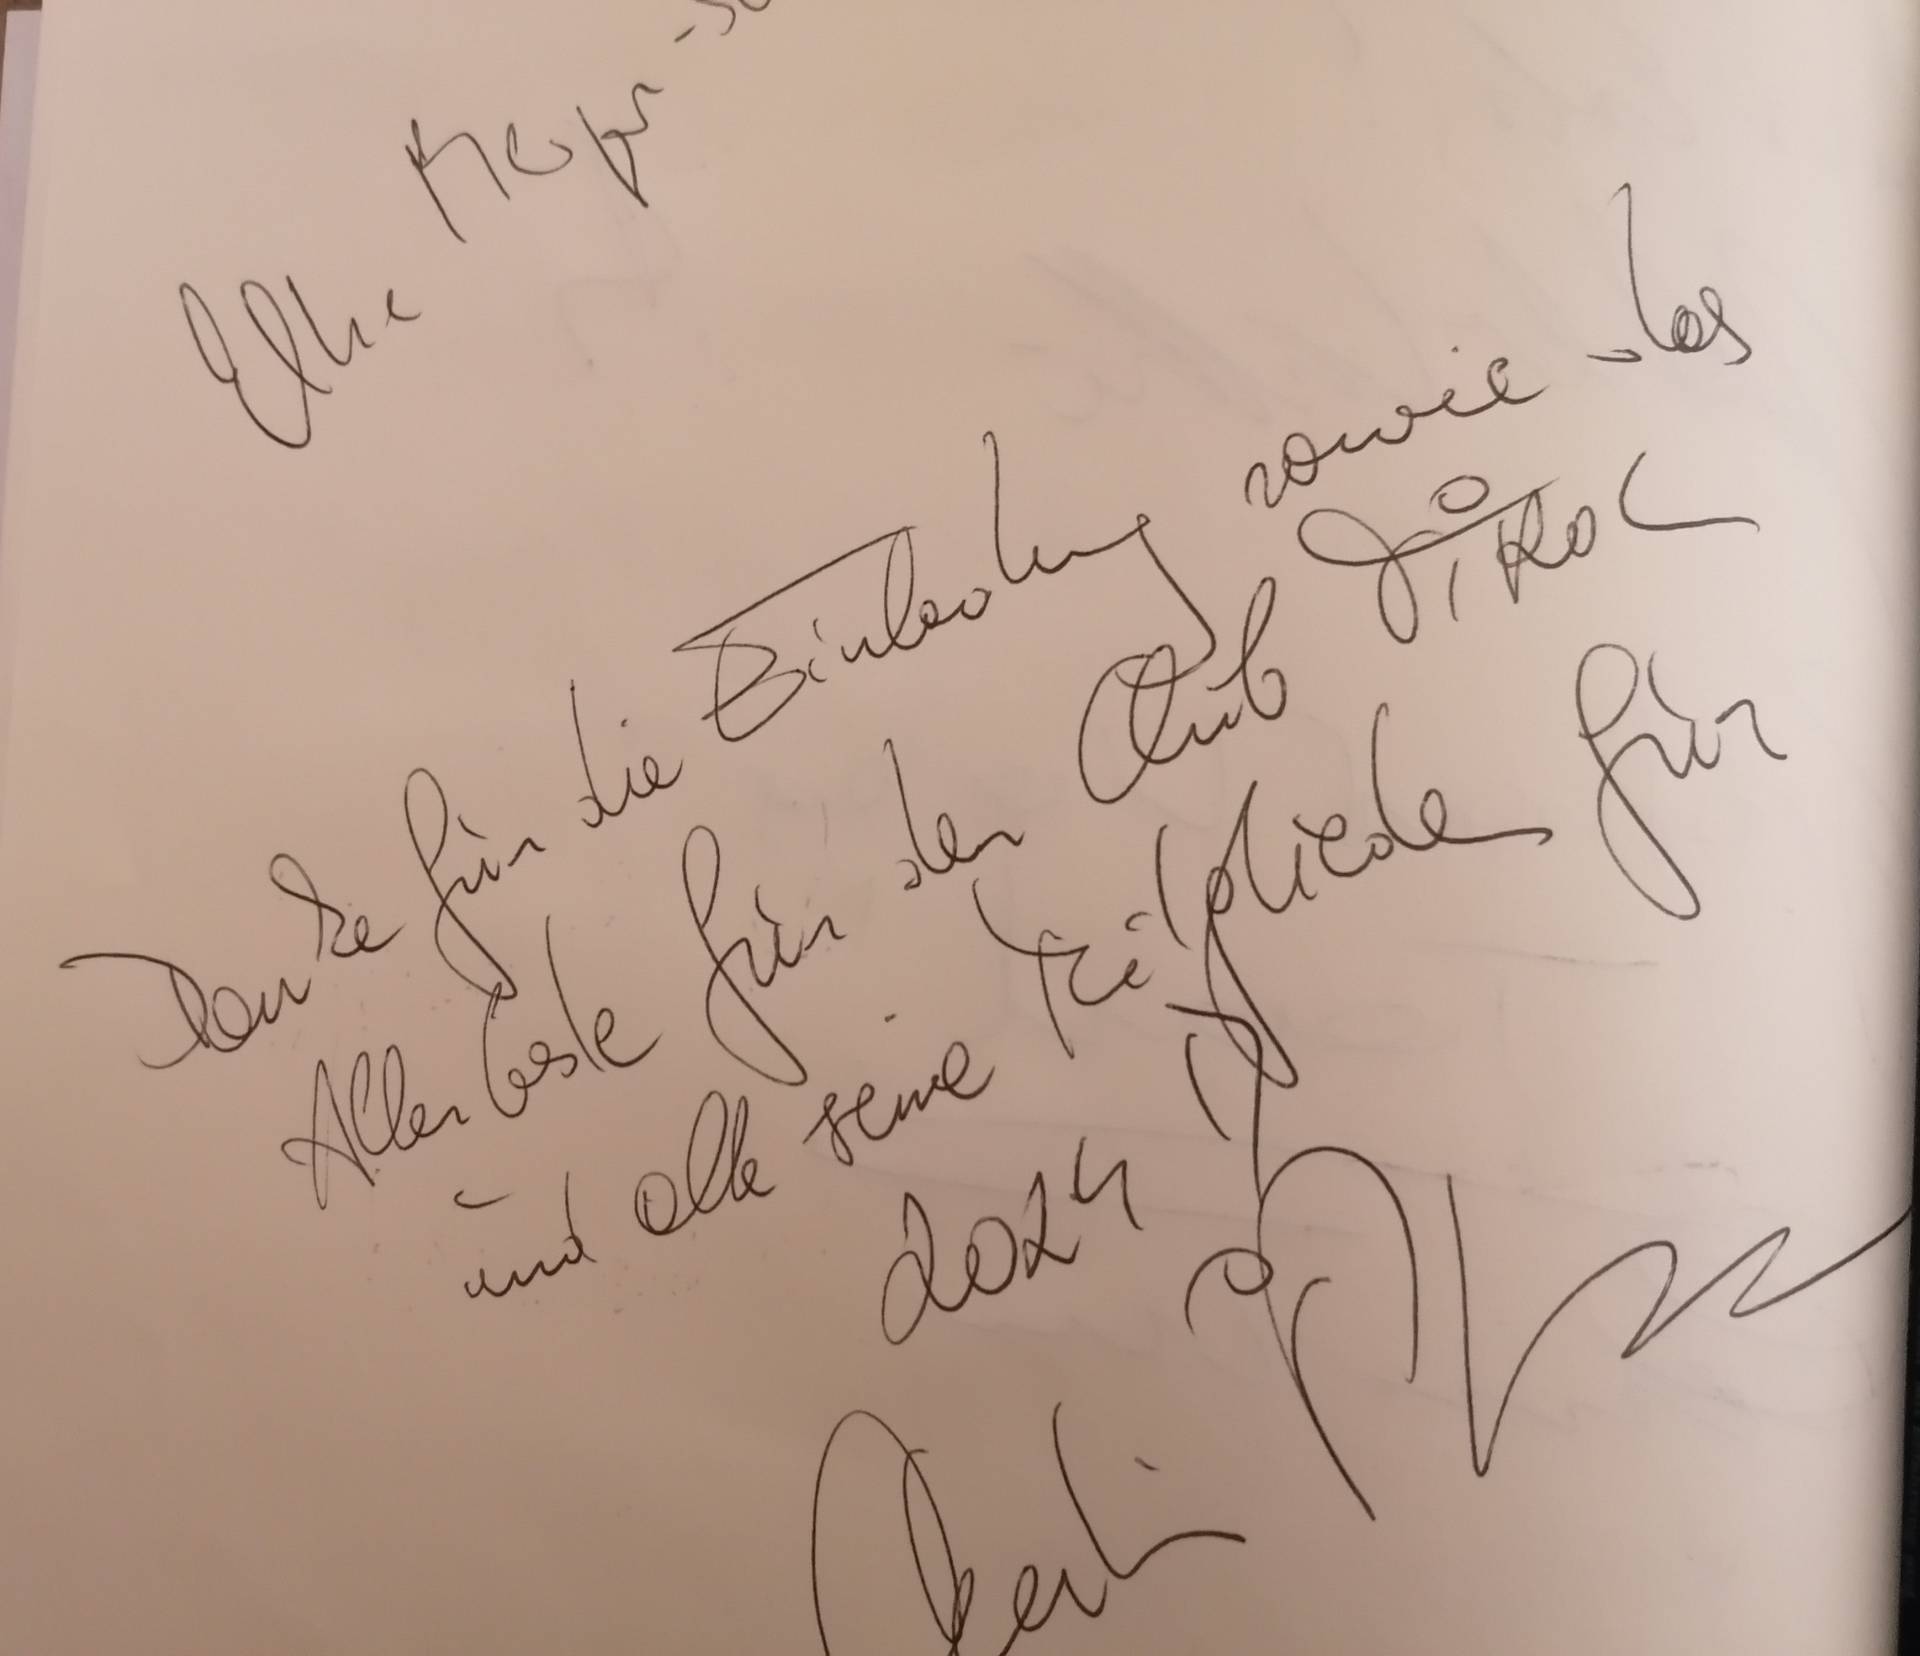 Elke
Danke für die Einladung sowie das
Allerbeste für den Club Tirol
und alle seine Mitglieder für
2024!